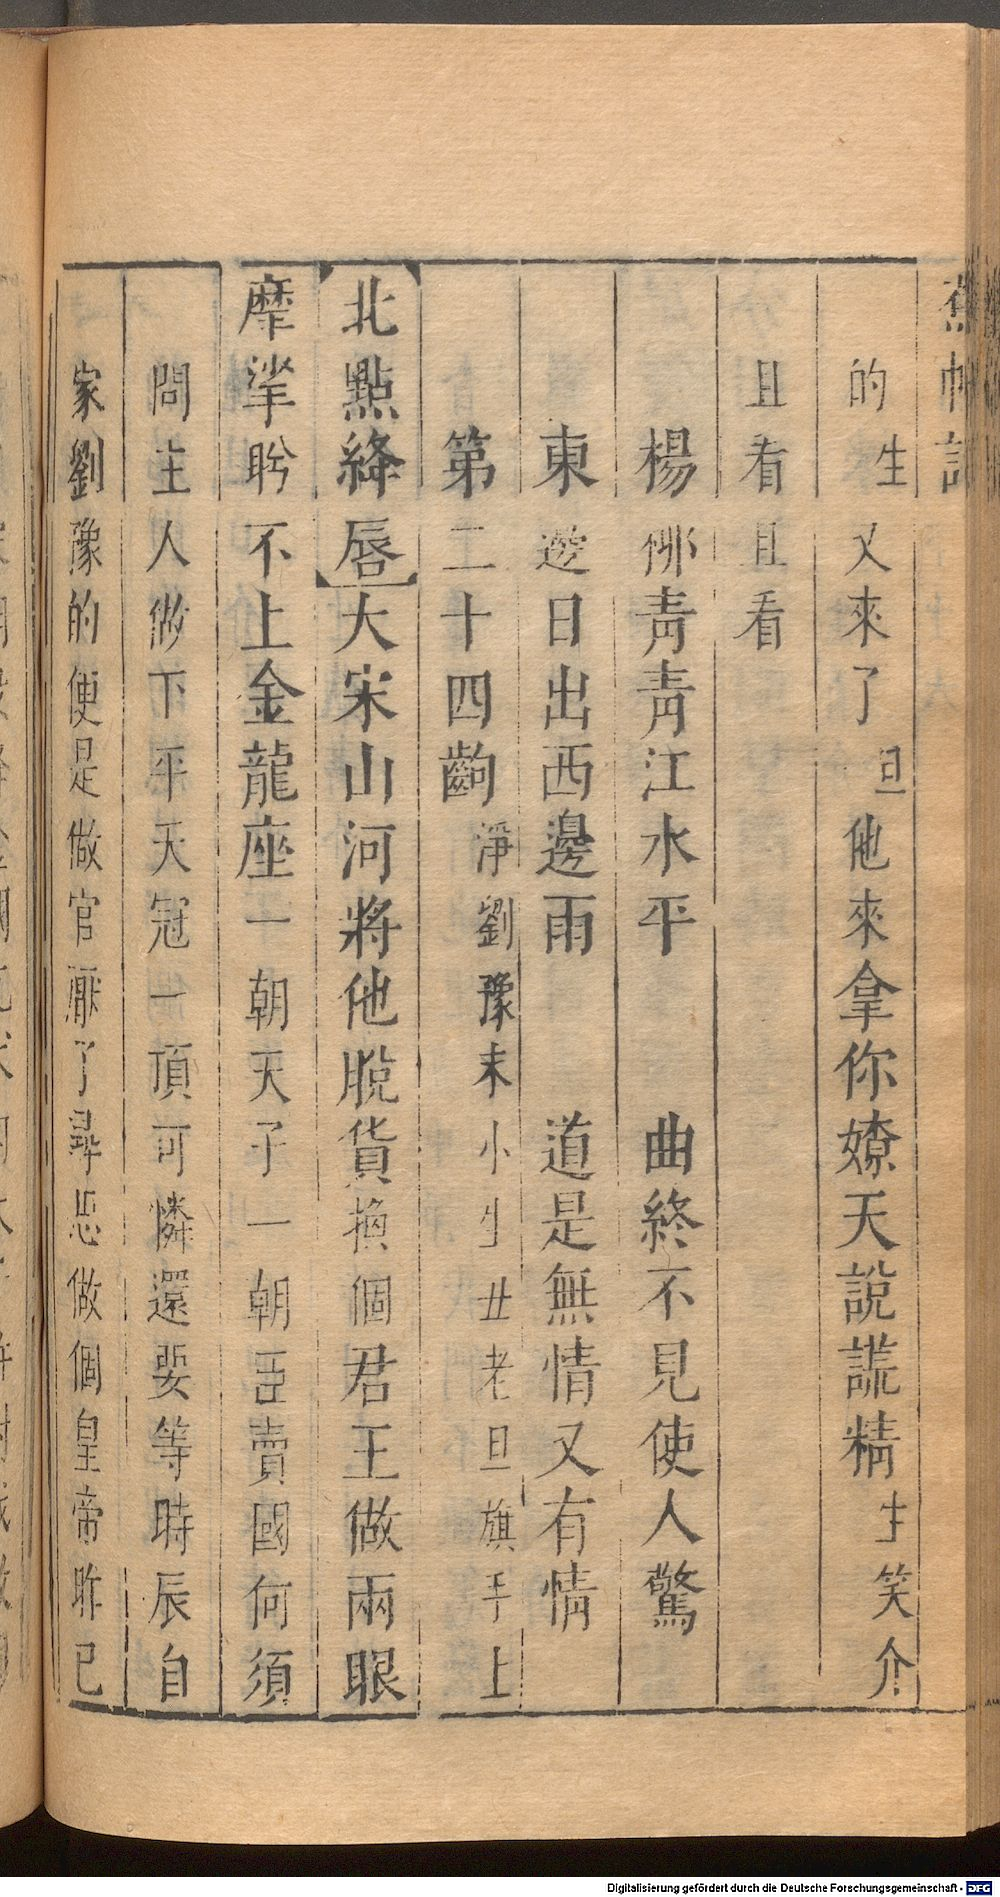 蕉帕記
的生又來了旦他來拿你嫽天說謊精生笑介
且看且看
楊栁靑靑江水平　曲終不見使人驚
東邊日出西邊雨　道是無情又有情
第二十四齣淨劉豫末小生丑老旦旗手上
北點絳唇大宋山河將他脫貨換個君王做兩眼
摩挲盻不上金龍座一朝天子一朝臣賣國何須
問主人做下平天冠一頂可憐還要等時辰自
家劉豫的便是做官厭了尋思做個皇帝昨已
Digitalisierung gefördert durch die Deutsche Forschungsgemeinschaft - DFG